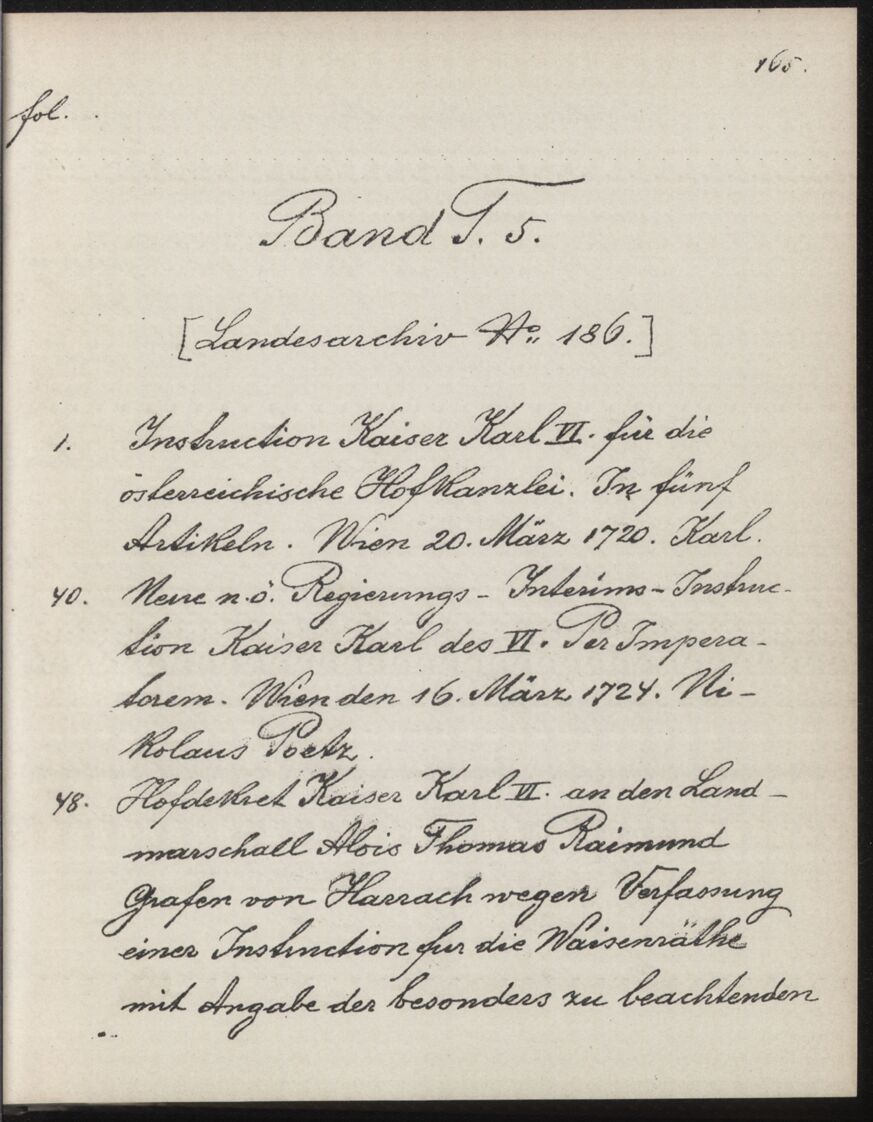 165.
fol.
Band T. 5.
[Landesarchiv No. 186.]
1. Instruction Kaiser Karl VI. für die
österreichische Hofkanzlei. In fünf
Artikeln. Wien 20. März 1720. Karl.
40. Neue n. ö. Regierungs-Interims-Instruc-
tion Kaiser Karl des VI. Per Impera-
torem. Wien den 16. März 1724. Ni-
kolaus Poetz.
48. Hofdekret Kaiser Karl VI. an den Land-
marschall Alois Thomas Raimund
Grafen von Harrach wegen Verfassung
einer Instruction fur die Waisenräthe
mit Angabe der besonders zu beachtenden